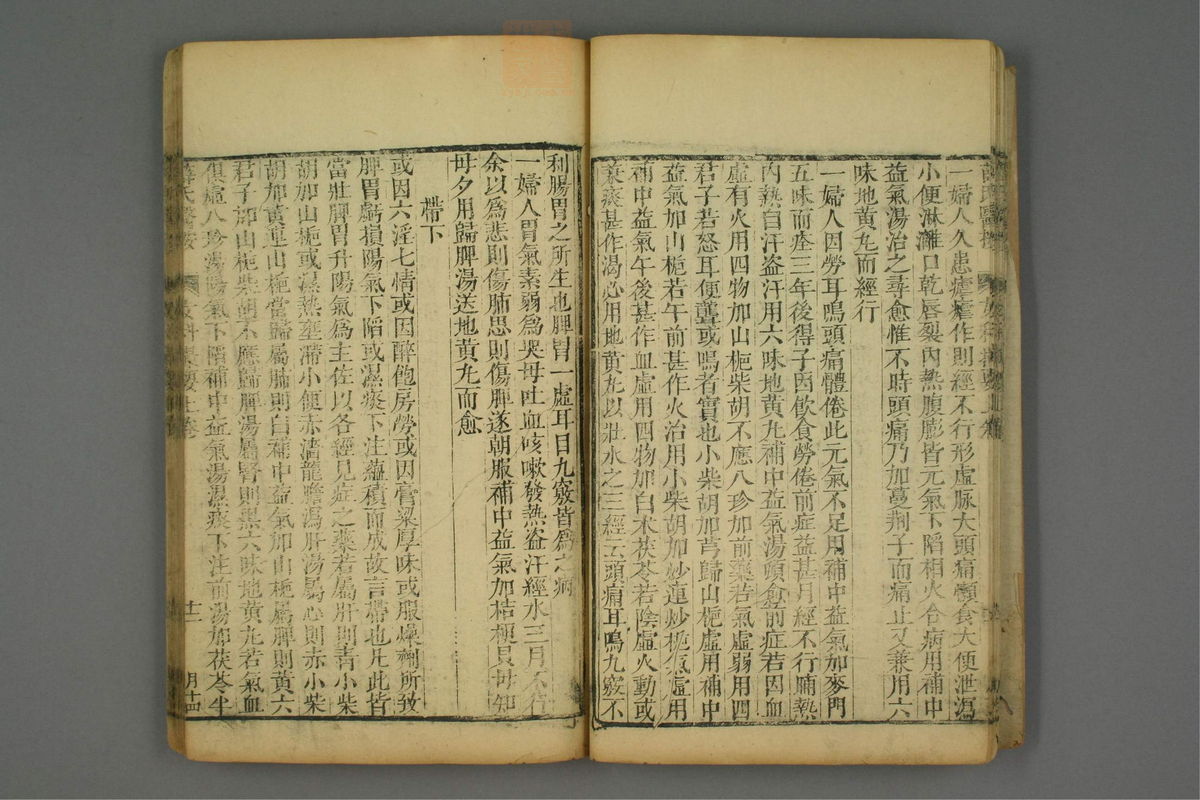 一婦人久患瘧瘧作則經不行形虛脉大頭痛懶食大便泄瀉
小便淋漓口乾唇裂內熱腹膨皆元氣下陷相火合病用補中
益氣湯治之尋愈惟不時頭痛乃加蔓荆子而痛止又兼用六
味地黃丸而經行
一婦人因勞耳鳴頭痛體倦此元氣不足用補中益氣加麥門
五味而痊三年後得子因飲食勞倦前症益甚月經不行晡熱
內熱自汗盗汗用六味地黃丸補中益氣湯頓愈前症若因血
虛有火用四物加山梔柴胡不應八珍加前藥若氣虛弱用四
君子若怒耳便聾或鳴者實也小柴胡加芎歸山梔虛用補中
益氣加山梔若午前甚作火治用小柴胡加炒連炒梔氣虛用
補中益氣午後甚作血虛用四物加白术茯苓若陰虛火動或
兼痰甚作渴必用地黃丸以壯水之主經云頭痛耳鳴九竅不
利腸胃之所生也脾胃一虛耳目九竅皆爲之病
一婦人胃氣素弱爲哭母吐血咳嗽發熱盗汗經水三月不行
余以爲悲則傷肺思則傷脾遂朝服補中益氣加桔梗貝母知
母夕用歸脾湯送地黃丸而愈
帶下
或因六淫七情或因醉飽房勞或因膏粱厚味或服燥劑所致
脾胃虧損陽氣下陷或濕痰下注蘊積而成故言帶也凡此皆
當壯脾胃升陽氣爲主佐以各經見症之藥若屬肝則青小柴
胡加山梔或濕熱壅滯小便赤濇龍膽瀉肝湯屬心則赤小柴
胡加黃連山梔當歸屬肺則白補中益氣加山梔屬脾則黃六
君子加山梔柴胡不應歸脾湯屬腎則黑六味地黃丸若氣血
俱虛八珍湯陽氣下陷補中益氣湯濕痰下注前湯加茯苓半
薛氏醫按 女科撮要上卷 十二